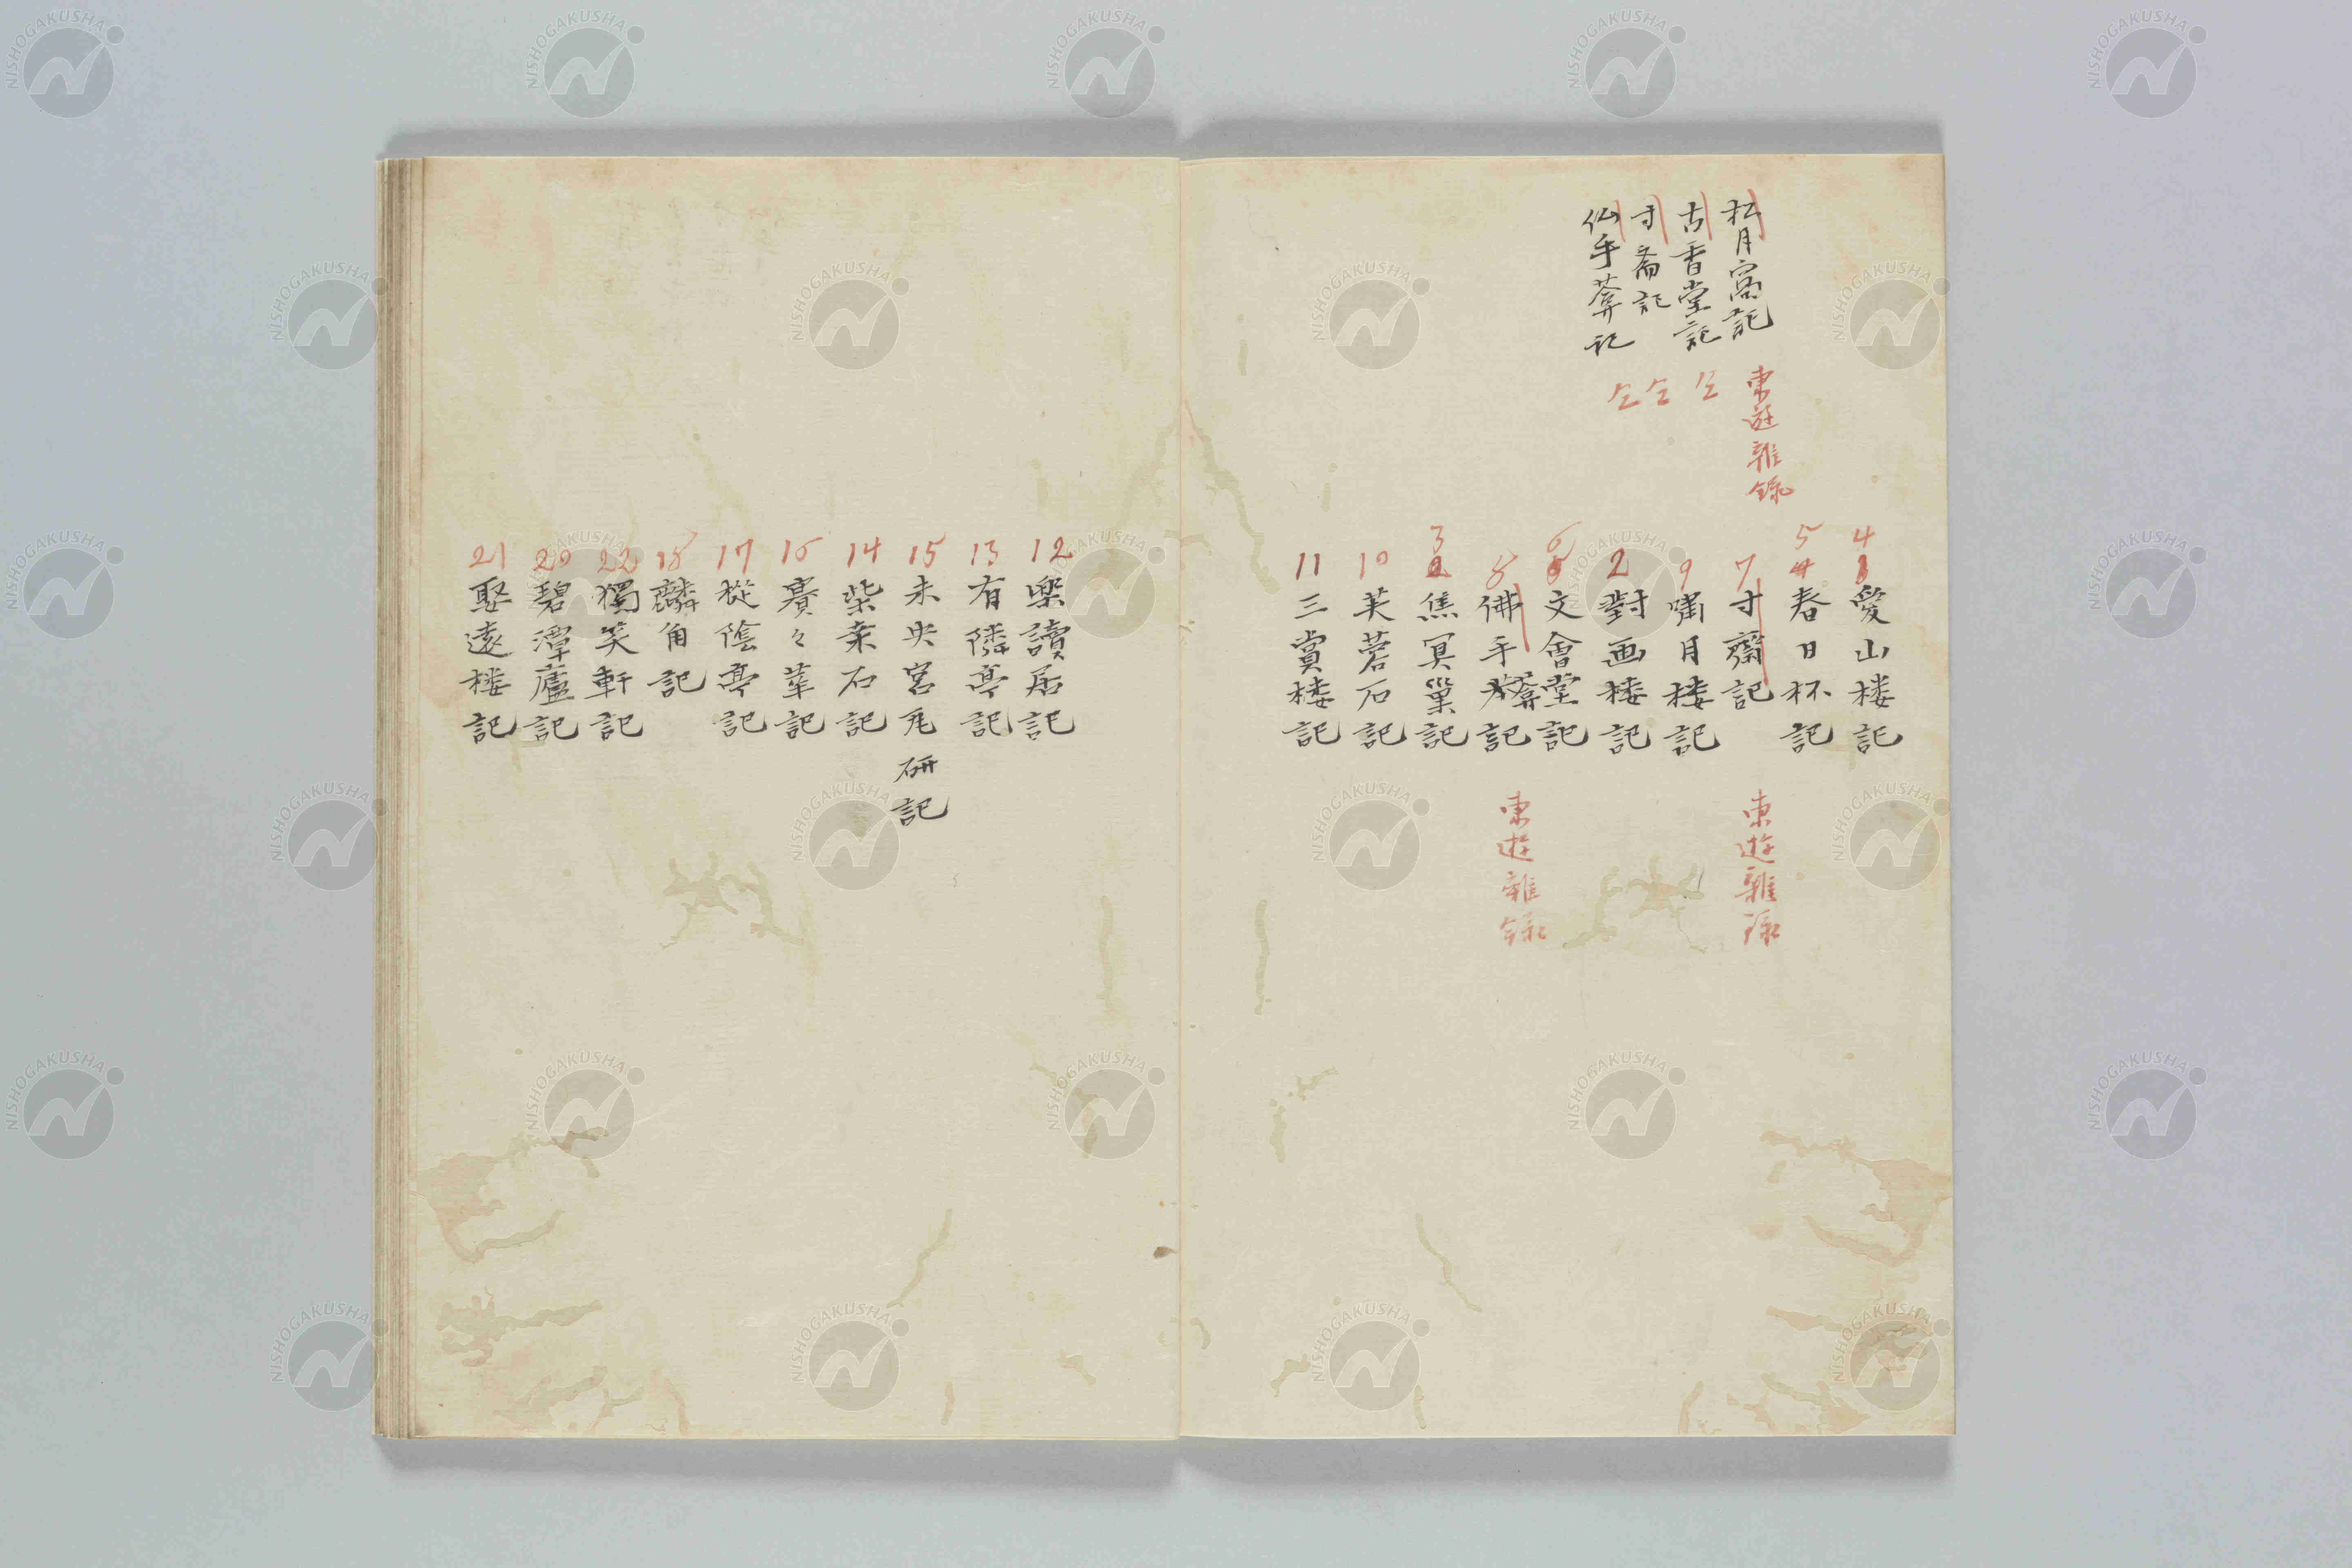 松月窩記
東遊雜錄
古香堂記
仝
寸斎記
仝
仏手葊記
仝
4
愛山楼記
5
春日杯記
7
寸齋記
東遊雜録
9
嘯月楼記
2
對画楼記
6
文會堂記
8
佛手葊記
東遊雜録
3
焦冥巢記
10
芙蓉石記
11
三賞楼記
12
楽讀居記
13
有隣亭記
15
未央宮瓦研記
14
柴桒石記
16
賽々華記
17
樅陰亭記
18
麟角記
22
獨笑軒記
20
碧潭廬記
21
娶遠楼記
NISHOGAKUSHA